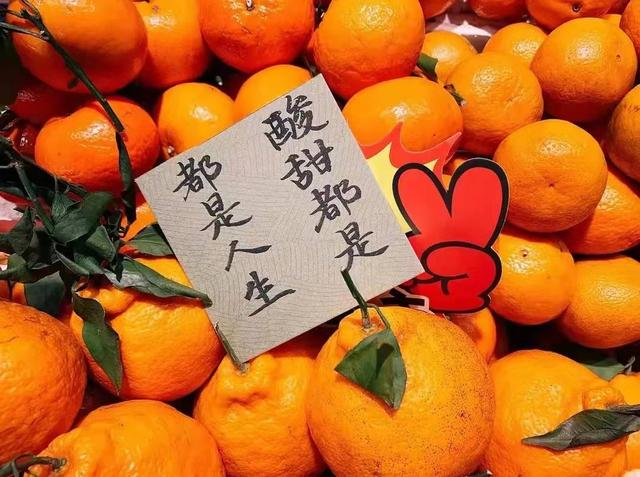 酸甜都是
都是人生